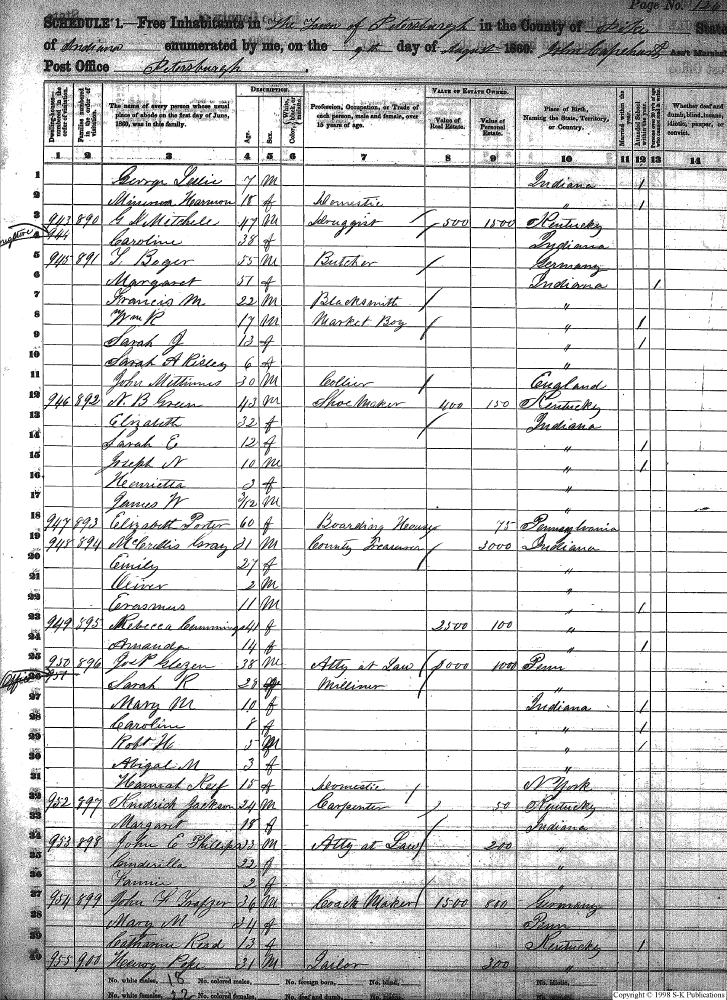 Page No. 126
SCHEDULE 1.—Free Inhabitants in The Town of Petersburgh in the County of Pike State
of Indiana enumerated by me, on the 9th day of August 1860. Ass't Marshal
Post Office Petersburgh
DESCRIPTION. VALUE OF ESTATE OWNED.
Dwelling-houses—numbered in the order of visitation. Families numbered in the order of visitation. The name of every person whose usual place of abode on the first day of June, 1860, was in this family. Age. Sex. Color, Profession, Occupation, or Trade of each person, male and female, over 15 years of age. Value of Real Estate. Value of Personal Estate. Place of Birth, Naming the State, Territory, or Country. Married within the year. Attended School within the year. Whether deaf and dumb, blind, insane, idiotic, pauper, or convict.
1 2 3 4 5 6 7 8 9 10 11 12 13 14
1 George 7 M Indiana /
2 Harmon 18 f Domestic " /
3 943 890 Mitchell 47 M Druggist / 500 1500 Kentucky
4 944 Caroline 38 f Indiana
5 945 891 Boger 55 M Butcher / Germany
6 Margaret 51 f Indiana /
7 Francis M 22 M Blacksmith / "
8 Wm R 17 M Market Boy / " /
9 Sarah J 13 f " /
10 Sarah A Risley 6 f "
11 John 30 M Collier / England
12 946 892 N B Green 43 M Shoe Maker 400 150 Kentucky
13 Elizabeth 32 f / Indiana
14 Sarah E 12 f " /
15 Joseph N 10 M " /
16 Henrietta 3 f "
17 James W 3/12 M "
18 947 893 Elizabeth Porter 60 f Boarding House 75 Pennsylvania
19 948 894 McCrellis Gray 31 M County Treasurer / 3000 Indiana
20 Emily 27 f "
21 Oliver 2 M "
22 Erasmus 11 M " /
23 949 895 Rebecca Cummings 41 f 2500 100 "
24 Amanda 14 f " /
25 950 896 Jos P Glezen 38 M Atty at Law / 1000 Penn
26 Office 951 Sarah R 28 f Milliner "
27 Mary M 10 f Indiana /
28 Caroline 8 f " /
29 Robt H 5 M " /
30 Abigal M 3 f "
31 Hannah Reef 15 f Domestic / N York
32 952 897 Kindrick Jackson 24 M Carpenter / 50 Kentucky
33 Margaret 18 f / Indiana
34 953 898 John E Phillips 23 M Atty at Law / 200 "
35 Cinderilla 22 f "
36 Fannie 2 f "
37 954 899 John F 36 M Coach Maker / 1500 800 Germany
38 Mary M 34 f Penn
39 Catharine Read 13 f Kentucky /
40 955 900 Henry Pope 31 M Tailor 300 "
No. white males, 18 No. colored males, No. foreign born, No. blind, No. idiotic,
No. white females, 22 No. colored females, No. deaf and dumb, No. insane,
Copyright © 1998 S-K Publications